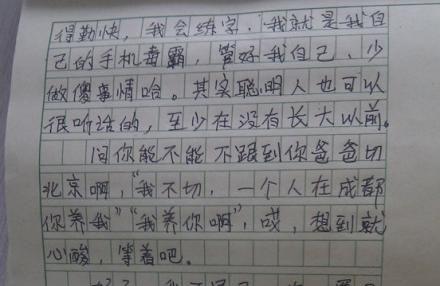 得勤快，我会练字，我就是我自
己的手机毒霸，管好我自己、少
做傻事情哈。其实聪明人也可以
很听话的，至少在没有长大以前。
问你能不能不跟到你爸爸切
北京啊，“我不切，一个人在成都
你养我”“我养你啊”，哎，想到就
心酸，等着吧。